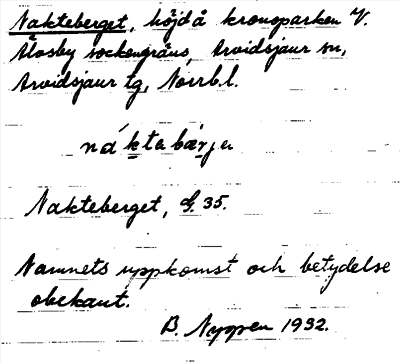 Nakteberget, höjd å kronoparken V.
Åsby sockengräns, Arvidsjaur sn,
Arvidsjaur tg, Norrb.l.
náktabærje
Nakteberget, G. 35.
Namnets uppkomst och betydelse
obekant.
B. Nygren 1932.